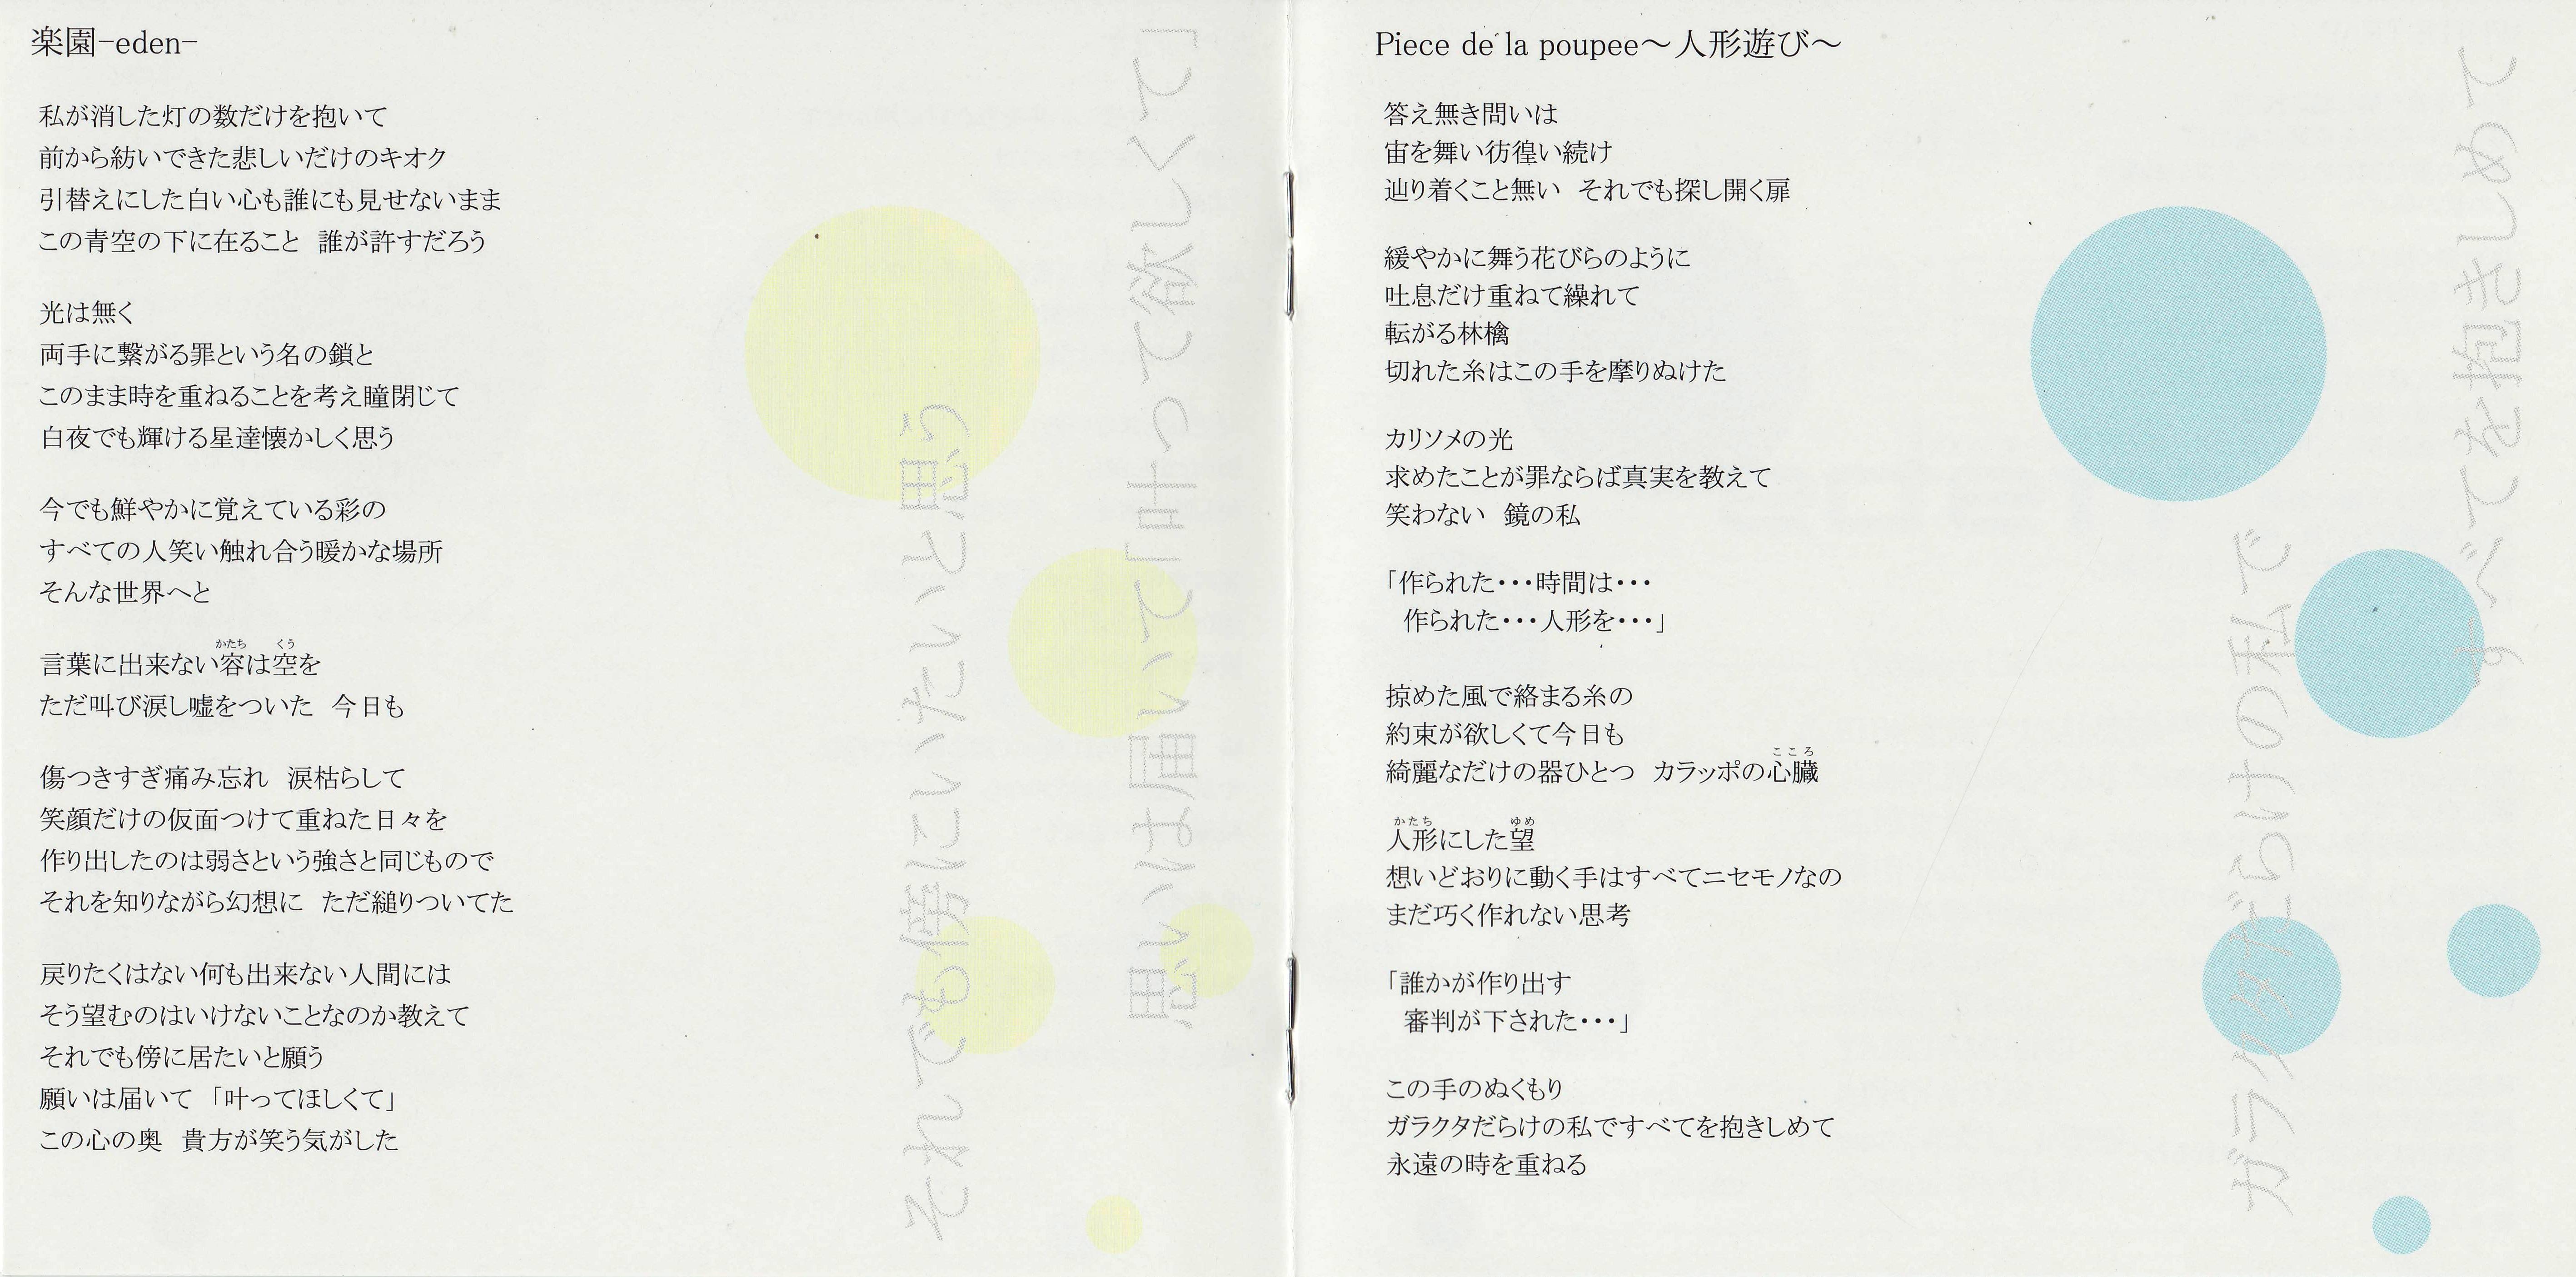 楽園−eden−
私が消した灯の数だけを抱いて
前から紡いできた悲しいだけのキオク
引替えにした白い心も誰にも見せないまま
この青空の下に在ること　誰が許すだろう
光は無く
両手に繋がる罪という名の鎖と
このまま時を重ねることを考え瞳閉じて
白夜でも輝ける星達懐かしく思う
今でも鮮やかに覚えている彩の
すべての人笑い触れ合う暖かな場所
そんな世界へと
かたち　くう
言葉に出来ない容は空を
ただ叫び涙し嘘をついた　今日も
傷つきすぎ痛み忘れ　涙枯らして
笑顔だけの仮面つけて重ねた日々を
作り出したのは弱さという強さと同じもので
それを知りながら幻想に　ただ縋りついてた
戻りたくはない何も出来ない人間には
そう望むのはいけないことなのか教えて
それでも傍に居たいと願う
願いは届いて「叶ってほしくて」
この心の奥　貴方が笑う気がした
それでも傍にいたいと思う
思いは届いて「叶って欲しくて」
Piece de la poupee～人形遊び～
答え無き問いは
宙を舞い彷徨い続け
辿り着くこと無い　それでも探し開く扉
緩やかに舞う花びらのように
吐息だけ重ねて繰れて
転がる林檎
切れた糸はこの手を摩りぬけた
カリソメの光
求めたことが罪ならば真実を教えて
笑わない　鏡の私
「作られた・・・時間は・・・
作られた・・・人形を・・・」
掠めた風で絡まる糸の
約束が欲しくて今日も
こころ
綺麗なだけの器ひとつ　カラッポの心臓
かたち　ゆめ
人形にした望
想いどおりに動く手はすべてニセモノなの
まだ巧く作れない思考
「誰かが作り出す
審判が下された・・・」
この手のぬくもり
ガラクタだらけの私ですべてを抱きしめて
永遠の時を重ねる
ガラクタだらけの私で
すべてを抱きしめて